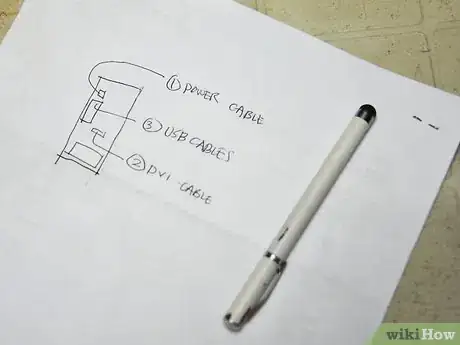 ① POWER CABLE
③ USB CABLES
② DVI CABLE
wikiHow